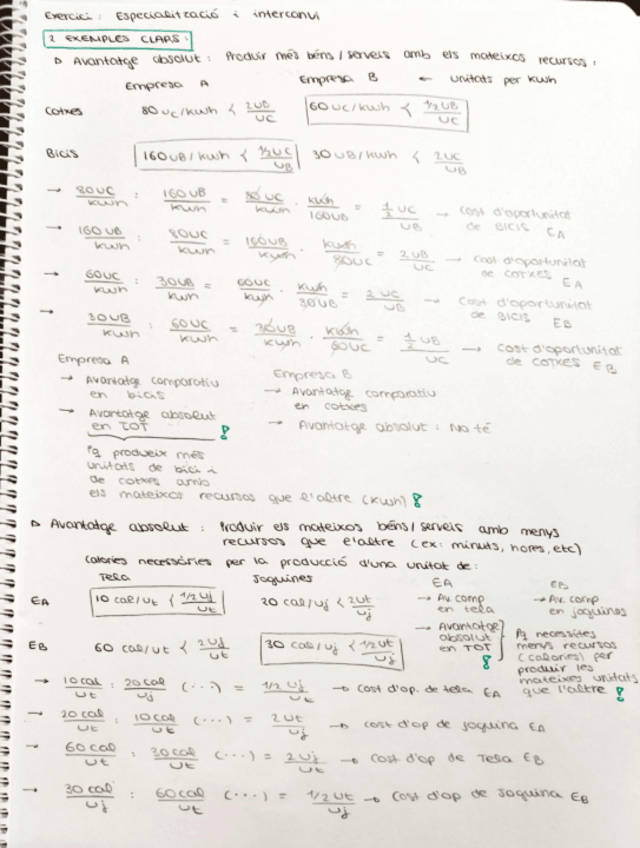 Exercici: Especialització i intercanvi
2 EXEMPLES CLARS:
▷ Avantatge absolut: Produir més béns/serveis amb els mateixos recursos.
Empresa A Empresa B ← unitats per kWh
Cotxes 80 UC/kWh < 2UB/UC 60 UC/kWh < 1/2 UB/UC
Bicis 160 UB/kWh < 1/2 UC/UB 30 UB/kWh < 2UC/UB
→ 80UC/kWh : 160UB/kWh = 80 UC/kWh · kWh/160UB = 1/2 UC/UB → Cost d'oportunitat de BICIS EA
→ 160 UB/kWh : 80UC/kWh = 160UB/kWh · kWh/80UC = 2UB/UC → Cost d'oportunitat de COTXES EA
→ 60UC/kWh : 30UB/kWh = 60UC/kWh · kWh/30UB = 2 UC/UB → Cost d'oportunitat de BICIS EB
→ 30UB/kWh : 60UC/kWh = 30UB/kWh · kWh/60UC = 1/2 UB/UC → Cost d'oportunitat de COTXES EB
Empresa A
→ Avantatge comparatiu en bicis
→ Avantatge absolut en TOT !
Pq produeix més
unitats de bici i
de cotxes amb
els mateixos recursos que l'altre (kWh) !
Empresa B
→ Avantatge comparatiu en cotxes
→ Avantatge absolut: No té
▷ Avantatge absolut: Produir els mateixos béns/serveis amb menys
recursos que l'altre (ex: minuts, hores, etc)
Calories necessàries per la producció d'una unitat de:
Tela Joguines
EA 10 cal/Ut < 1/2 Uj/Ut 20 cal/Uj < 2Ut/Uj
EB 60 cal/Ut < 2Uj/Ut 30 cal/Uj < 1/2 Ut/Uj
EA
→ Av. comp en tela
→ Avantatge absolut en TOT !
Pq necessites
menys recursos
(calories) per
produir les
mateixes unitats
que l'altre !
EB
→ Av. comp en joguines
→ 10 cal/Ut : 20 cal/Uj (...) = 1/2 Uj/Ut → Cost d'op. de tela EA
→ 20 cal/Ut : 10 cal/Ut (...) = 2 Ut/Uj → cost d'op de joguina EA
→ 60 cal/Ut : 30 cal/Ut (...) = 2 Uj/Ut → Cost d'op de Tela EB
→ 30 cal/Uj : 60 cal/Ut (...) = 1/2 Ut/Uj → Cost d'op de Joguina EB